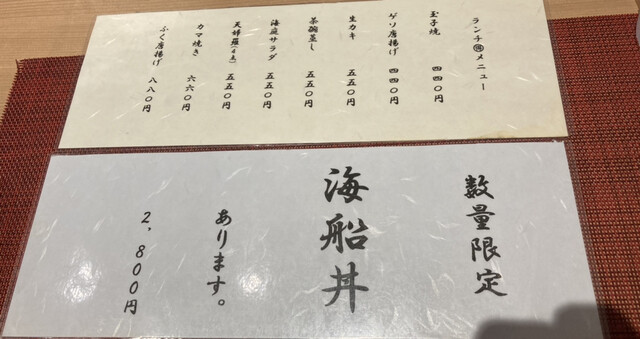 ランチ㊙メニュー
玉子焼 四四〇円
ゲソ唐揚げ 四四〇円
生カキ 五五〇円
茶碗蒸し 五五〇円
海鹿サラダ 五五〇円
天婦羅 五五〇円
カマ焼き 六六〇円
ふく唐揚げ 八八〇円
数量限定
海船丼
あります。
2,800円